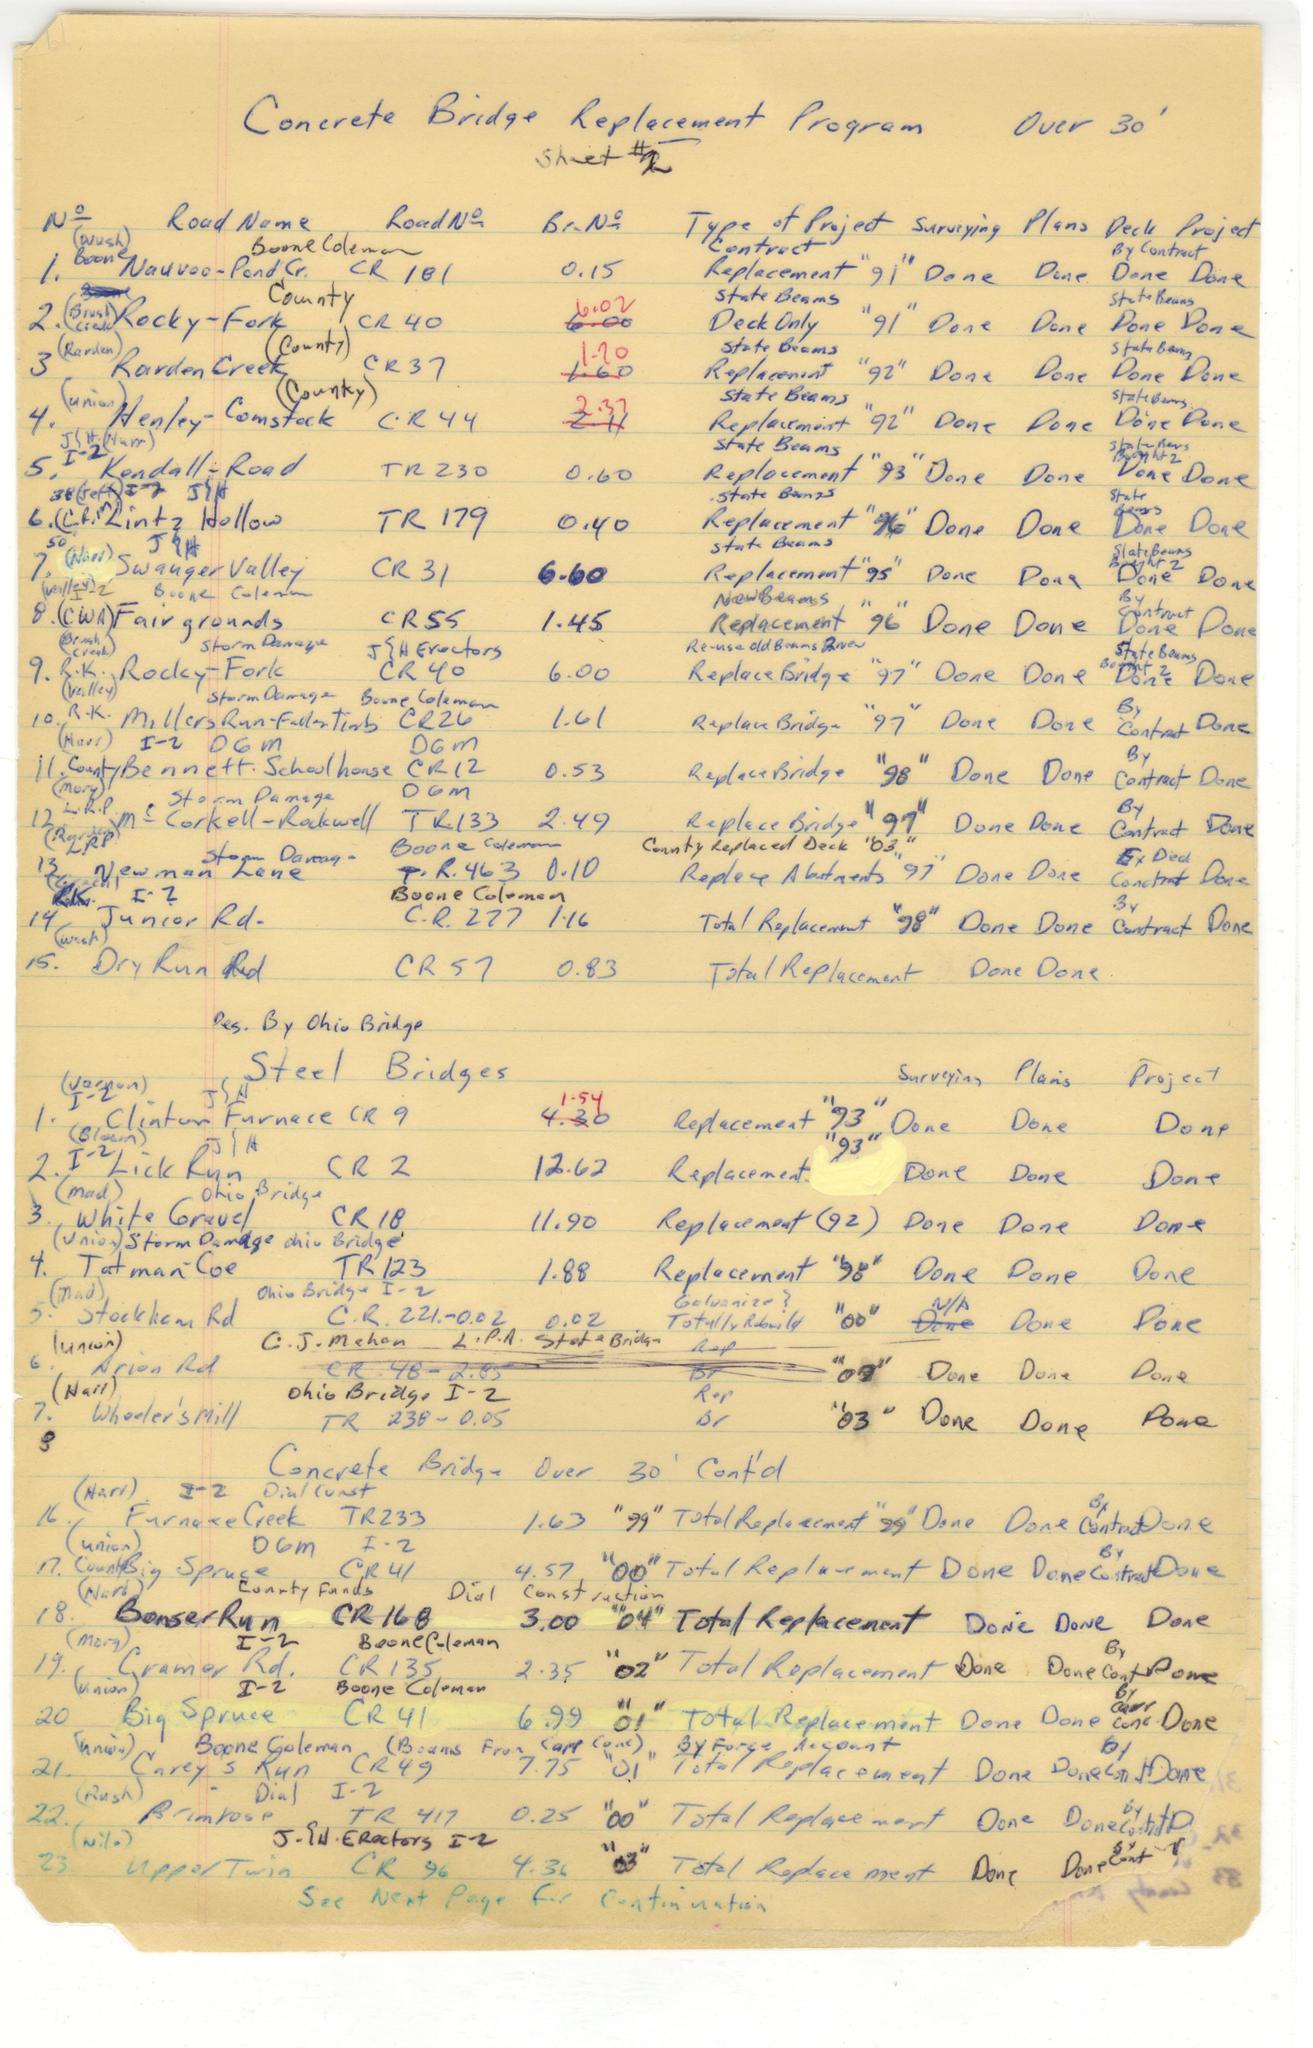 Concrete Bridge Replacement Program Over 30'
Sheet #2
Nº Road Name Road Nº Br. Nº Type of Project Surveying Plans Deck Project
(Rush) Boone Coleman Contract By Contract
1. Boone Nauvoo-Pond Cr. CR 181 0.15 Replacement "91" Done Done Done Done
County 6.02 State Beams State Beams
2. (Brush Creek) Rocky-Fork CR 40 6.00 Deck Only "91" Done Done Done Done
(Rarden) (County) 1.20 State Beams State Beam
3 Rarden Creek CR 37 1.60 Replacement "92" Done Done Done Done
(Union) (County) 2.37 State Beams State Beams
4. Henley-Comstock CR 44 Replacement "92" Done Done Done Done
J&H (Harr) State Beams State Bms
I-2 Bought 2
5. Kendall-Road TR 230 0.60 Replacement "93" Done Done Done Done
(Jeff) I-2 J&H State Beams State Beams
6. Lintz Hollow TR 179 0.40 Replacement "96" Done Done Done Done
50 J&H State Beams State Beams
7. (Harr) Swauger Valley CR 31 6.60 Replacement "95" Bought 2 Done Done Done Done
(Valley) I-2 Boone Coleman New Beams By Contract
8. (CWA) Fairgrounds CR 55 1.45 Replacement "96" Done Done Done Done
(Brush Creek) Storm Damage J&H Erectors Re-use old Beams State Beams
9. R.K. Rocky-Fork CR 40 6.00 Replace Bridge "97" Done Done Bought 2 Done Done
(Valley) Storm Damage Boone Coleman
10. R.K. Millers Run-Fallen Timb CR 26 1.61 Replace Bridge "97" Done Done By Contract Done
(Harr) I-2 DGM DGM
11. County Bennett Schoolhouse CR 12 0.53 Replace Bridge "98" Done Done By Contract Done
(Morg) Storm Damage DGM
L.R.P
12. Mc Corkell-Rockwell TR 133 2.49 Replace Bridge "97" Done Done By Contract Done
LRP Storm Damage Boone Coleman County Replaced Deck "03"
13. Newman Lane T.R. 463 0.10 Replace Abutments "97" Done Done Ex Deck Contract Done
R.K. I-2 Boone Coleman
14 Junior Rd. C.R. 277 1.16 Total Replacement "98" Done Done By Contract Done
(Wash)
15. Dry Run Rd CR 57 0.83 Total Replacement Done Done
Des. By Ohio Bridge
Steel Bridges Surveying Plans Project
(Vernon) I-2 J&H 1.54
1. Clinton Furnace CR 9 4.30 Replacement "93" Done Done Done
(Bloom) I-2 J&H "93"
2. Lick Run CR 2 12.62 Replacement Done Done Done
(Mad) Ohio Bridge
3. White Gravel CR 18 11.90 Replacement (92) Done Done Done
(Union) Storm Damage Ohio Bridge
4. Tatman-Coe TR 123 1.88 Replacement "98" Done Done Done
(Mad) Ohio Bridge I-2 Galvanize & N/A
5. Stockham Rd C.R. 221-0.02 0.02 Totally Rebuild "00" Done Done Done
(Union) C.J. Mahan L.P.A. State Bridge Rep
6. Arion Rd CR 48-2.85 Br Done Done Done
(Harr) Ohio Bridge I-2 Rep
7. Wheeler's Mill TR 238-0.05 Br "03" Done Done Done
8
Concrete Bridge Over 30' Cont'd
(Harr) I-2 Dial Const
16. Furnace Creek TR 233 1.63 "99" Total Replacement "99" Done Done By Contract Done
(Union) DGM I-2
17. County Big Spruce CR 41 4.57 "00" Total Replacement Done Done By Contract Done
(Harr) County Funds Dial Construction
18. Bonser Run CR 168 3.00 "04" Total Replacement Done Done Done
(Morg) I-2 Boone Coleman
19. Cramer Rd. CR 135 2.35 "02" Total Replacement Done Done By Cont Done
(Union) I-2 Boone Coleman
20 Big Spruce CR 41 6.99 "01" Total Replacement Done Done By Conc Done
(Union) Boone Coleman (Beams From Carr Conc) By Force Account
21. Carey's Run CR 49 7.75 "01" Total Replacement Done Done By Const Done
(Rush) Dial I-2
22. Brimrose TR 417 0.25 "00" Total Replacement Done Done By D
(Nile) J.&H. Erectors I-2
23 Upper Twin CR 96 4.36 "03" Total Replacement Done Done By Cont
See Next Page for Continuation